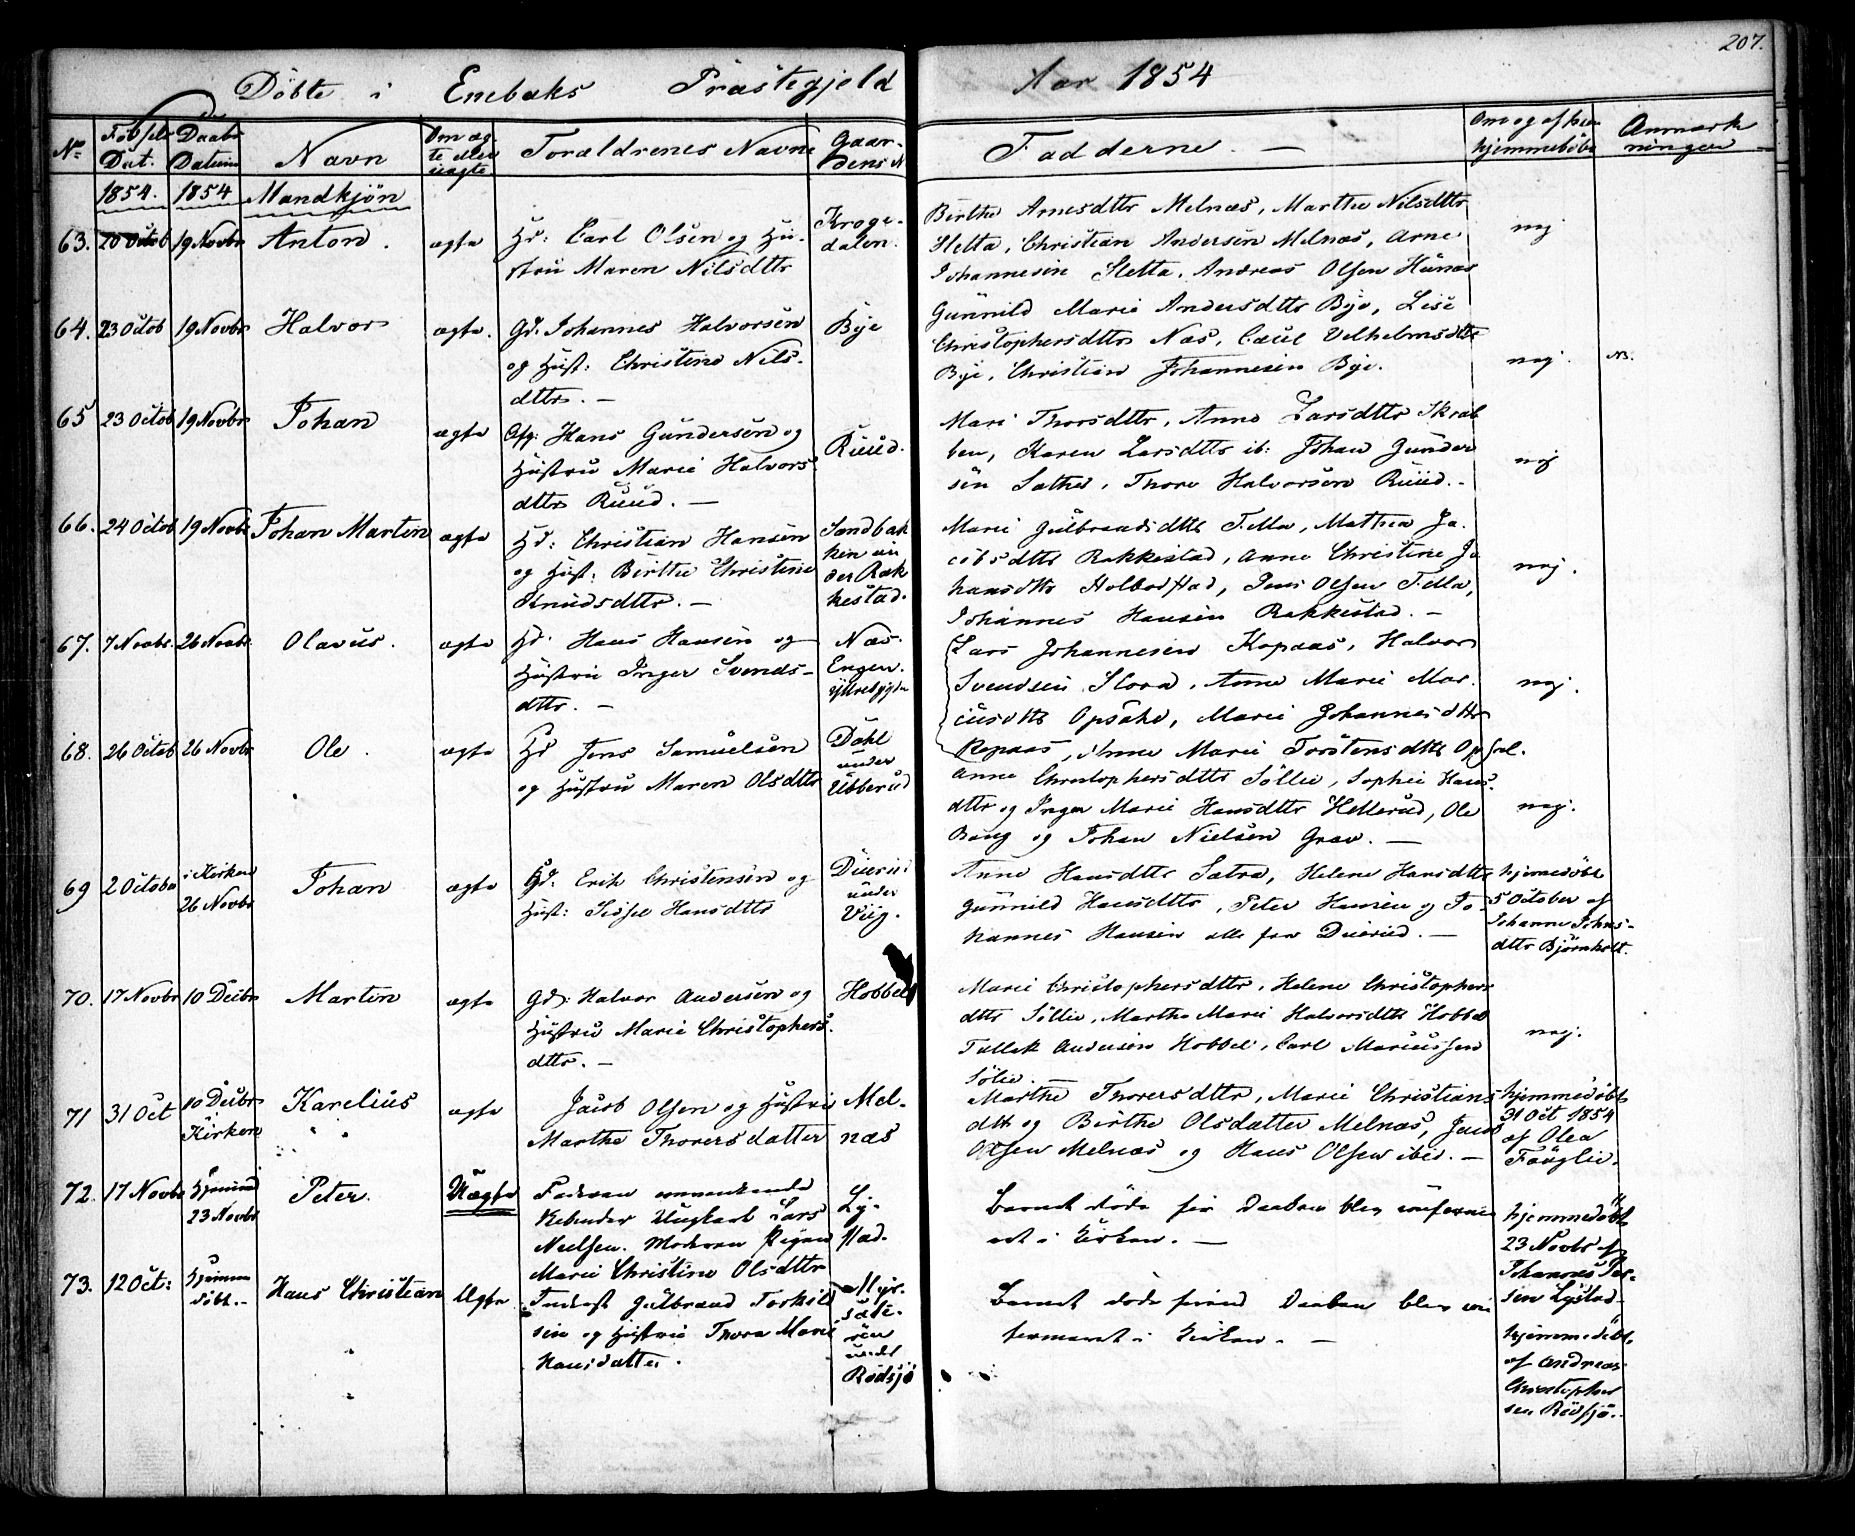 207.
Döbte i Enebaks Præstegjeld Aar 1854
No. Födsels Dat. Daabs Datum Navn Om ægte eller uægte Forældrenes Navne Gaardens N Fadderne. — Om og af hvem hjemmedöbt Anmærkninger
1854. 1854 Mandkjön
63. 20 Octob 19 Novbr Anton. ægte Hd: Carl Olsen og Hu-
stru Maren Nilsdttr
Kroge-
dalen.
Birthe Arnesdttr Melnæs, Marthe Nilsdttr
Sletta, Christian Andersen Melnæs, Arne
Johannesen Sletta, Andreas Olsen
nej
64. 23 Octob 19 Novbr Halvor ægte. Gd. Johannes Halvorsen
og Hust: Christine Nils-
dttr. —
Bye
Gunnild Marie Andersdttr Bye, Lise
Christophersdttr Næs,
Bye, Christian Johannesen Bye.
nej. NB.
65 23 Octob 19 Novbr Johan ægte Hans Gundersen og
Hustru Marie Halvors
dttr Ruud. —
Ruud.
Mari Thorsdttr, Anne Larsdttr Skrab
ben, Karen Larsdttr ib: Johan Gunder
sen Sæther, Thore Halvorsen Ruud. -
nej
66. 24 Octob 19 Novbr Johan Martin ægte Hd: Christian Hansen
og Hust: Birthe Christine
Knudsdttr. —
Sandbak
ken un
der Rak
kestad.
Marie Gulbrandsdttr Tella, Mathea Ja-
cobsdttr Rakkestad, Anne Christine Jo
hansdttr, Jens Olsen Tella,
Johannes Hansen Rakkestad. —
nej.
67. 7 Novbr. 26 Novbr. Olavus. ægte Hd: Hans Hansen og
Hustru Inger Svends-
dttr. —
Næs-
Engen.
Ytrebygden
Lars Johannesen Kopaas, Halvor
Svendsen Flora, Anne Marie Mar-
iusdttr Opsahl, Marie Johannesdttr
Kopaas, Anne Marie Torstensdttr Opsal.
nej.
68. 26 Octob 26 Novbr Ole. ægte Hd Jens Samuelsen
og Hustru Maren Olsdttr
Dahl
under
Ubberud
Anne Christophersdttr Söllie, Sophie Hans-
dttr og Inger Marie Hansdttr Hellerud, Ole
Bang og Johan Nielsen Grav. —
nej.
69 2 October i Kirken
26 Novbr
Johan ægte Gd. Erik Christensen og
Hust: Sissel Hansdttr
Duerud
under
Viig.
Anne Hansdttr Sætra, Helene Hansdttr
Gunnild Hansdttr, Peter Hansen og Jo-
hannes Hansen alle fra Duerud. —
hjemmedöbt
5 October af
Johanne Johns-
dttr Björnholt.
70. 17 Novbr 10 Decbr Martin ægte Gd: Halvor Andersen og
Hustru Marie Christophers-
dttr. —
Hobbel
Marie Christophersdttr, Helene Christophers
dttr Söllie, Marthe Marie Halvorsdttr Hobbel
Tollak Andersen Hobbel, Carl Mariussen
Sölie. —
nej.
71 31 Oct 10 Decbr
Kirken
Karelius ægte Jacob Olsen og Hustru
Marthe Thorersdatter
Mel-
næs
Marthe Thorersdttr, Marie Christians
dtt og Birthe Olsdatter Melnæs, Jacob
Olsen Melnæs og Hans Olsen ibid. —
hjemmedöbt
31 Oct 1854
af Olea
Fauglie.
72. 17 Novbr Hjemme
23 Novbr
Peter. Uægte Faderen
Ungkarl Lars
Nielsen. Moderen Pigen
Marie Christine Olsdttr
Ly-
stad.
Barnet döde för Daaben blev confirme
ret i Kirken. —
hjemmedöbt
23 Novbr af
Johannes Pe-
sen Lystad
73. 12 Oct: Hjemme
döbt.-
Hans Christian Ægte Inderst Gulbrand Torkild
sen og Hustru Thora Marie
Hansdatter.
Myr-
sæte-
ren
under
Rödsjö
Barnet döde förend Daaben blev con
firmeret i Kirken. —
hjemmedöbt
af Andreas
Christopher
sen Rödsjö.